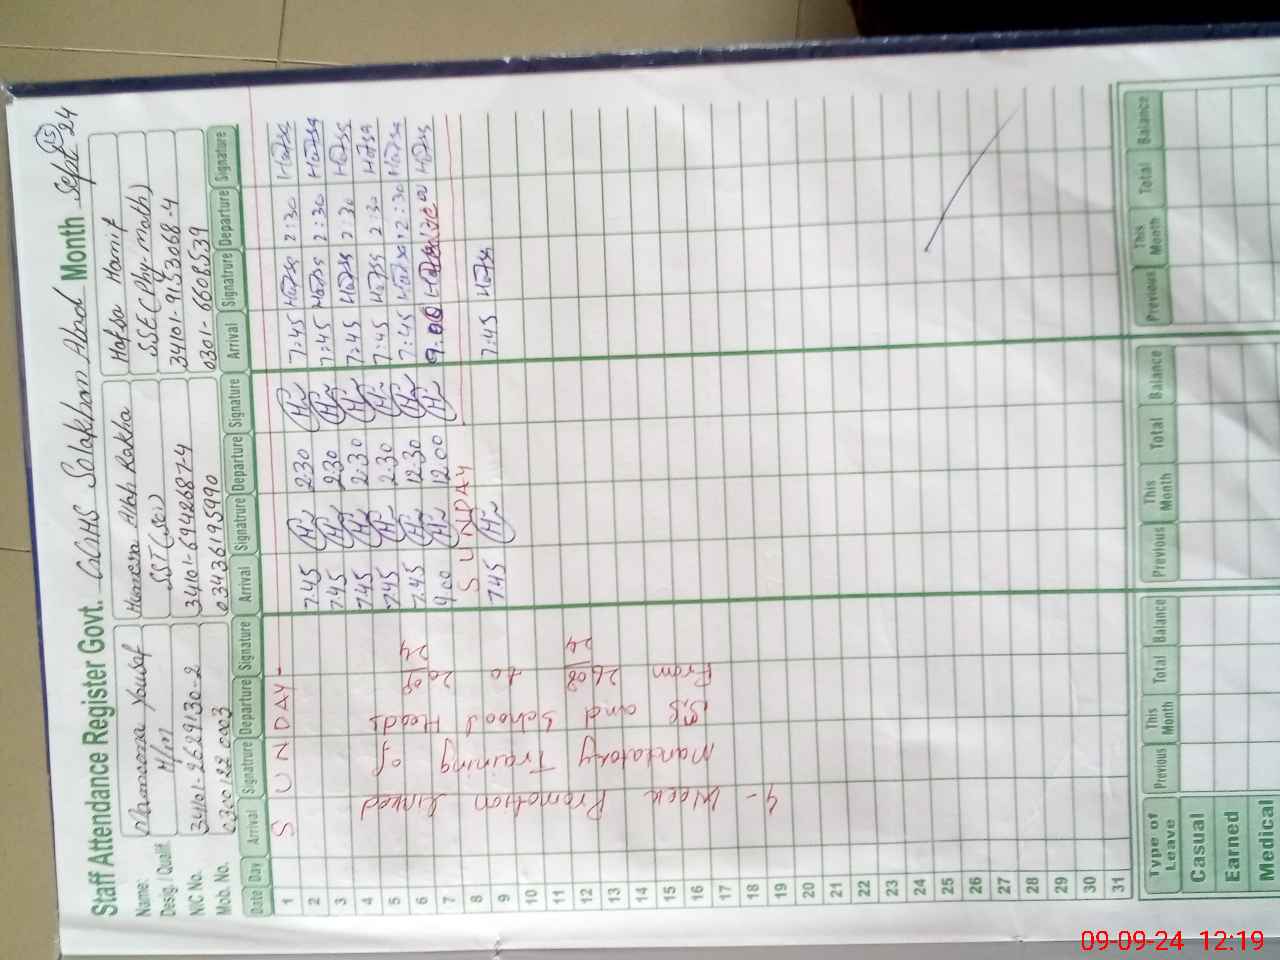 Staff Attendance Register Govt. GGHS Salakhan Abad Month Sept-24
15
Name: Yousaf
Desig. / Qualif. H/M
NIC No. 34101-2629130-2
Mob. No. 0300122 0003
Allah Rakha
SST (Sci)
34101-6942687-4
03436195990
Hafsa Hanif
SSE (Phy-Math)
34101-9153068-4
0301-6608539
Date Day Arrival Signatrure Departure Signature Arrival Signatrure Departure Signature Arrival Signatrure Departure Signature
1 S U N D A Y -
2 7.45 2.30 7:45 Hafsa 2:30 Hafsa
3 7.45 2.30 7:45 Hafsa 2:30 Hafsa
4 7.45 2.30 7:45 Hafsa 2:30 Hafsa
5 7.45 2.30 7:45 Hafsa 2:30 Hafsa
6 7.45 12.30 7:45 Hafsa 2:30 Hafsa
7 9.00 12.00 9:00 Hafsa
8 S U N D A Y
9 7.45 7:45 Hafsa
10
11
12
13
14
15
16
17
18
19
20
21
22
23
24
25
26
27
28
29
30
31
4 - Week Promotion Linked
Mandatory Training of
S.S and School Heads
From 26 08 24 to 20 09 24
Type of Leave Previous This Month Total Balance Previous This Month Total Balance Previous This Month Total Balance
Casual
Earned
Medical
09-09-24 12:19